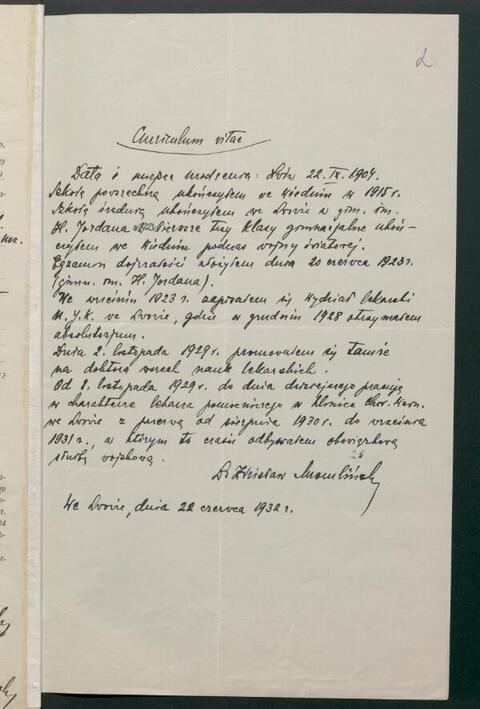 2
Curriculum vitae
Data i miejsce urodzenia: Lwów 22. IX. 1904.
Szkołę powszechną ukończyłem we Wiedniu w 1915 r.
Szkołę średnią ukończyłem we Lwowie w gim. im.
H. Jordana Pierwsze trzy klasy gimnazjalne ukoń-
czyłem we Wiedniu podczas wojny światowej.
Egzamin dojrzałości złożyłem dnia 20 czerwca 1923 r.
(gimn. im. H. Jordana).
We wrześniu 1923 r. zapisałem się Wydział lekarski
U. J. K. we Lwowie, gdzie w grudniu 1928 otrzymałem
absolutorjum.
Dnia 2. listopada 1929 r. promowałem się tamże
na doktora wszech nauk lekarskich.
Od 8. listopada 1929 r. do dnia dzisiejszego pracuję
w charakterze lekarza pomocniczego w Klinice Chor. Wewn.
we Lwowie z przerwą od sierpnia 1930 r. do września
1931 r., w którym to czasie odbywałem obowiązkową
służbę wojskową.
Dr Zdzisław
We Lwowie, dnia 22 czerwca 1932 r.